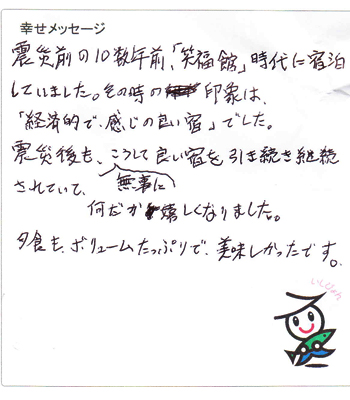 幸せメッセージ
震災前の10数年前、「笑福館」時代に宿泊
していました。その時の印象は、
「経済的で、感じの良い宿」でした。
震災後も、こうして良い宿を引き続き継続
されていて、無事に
何だか嬉しくなりました。
夕食も、ボリュームたっぷりで、美味しかったです。